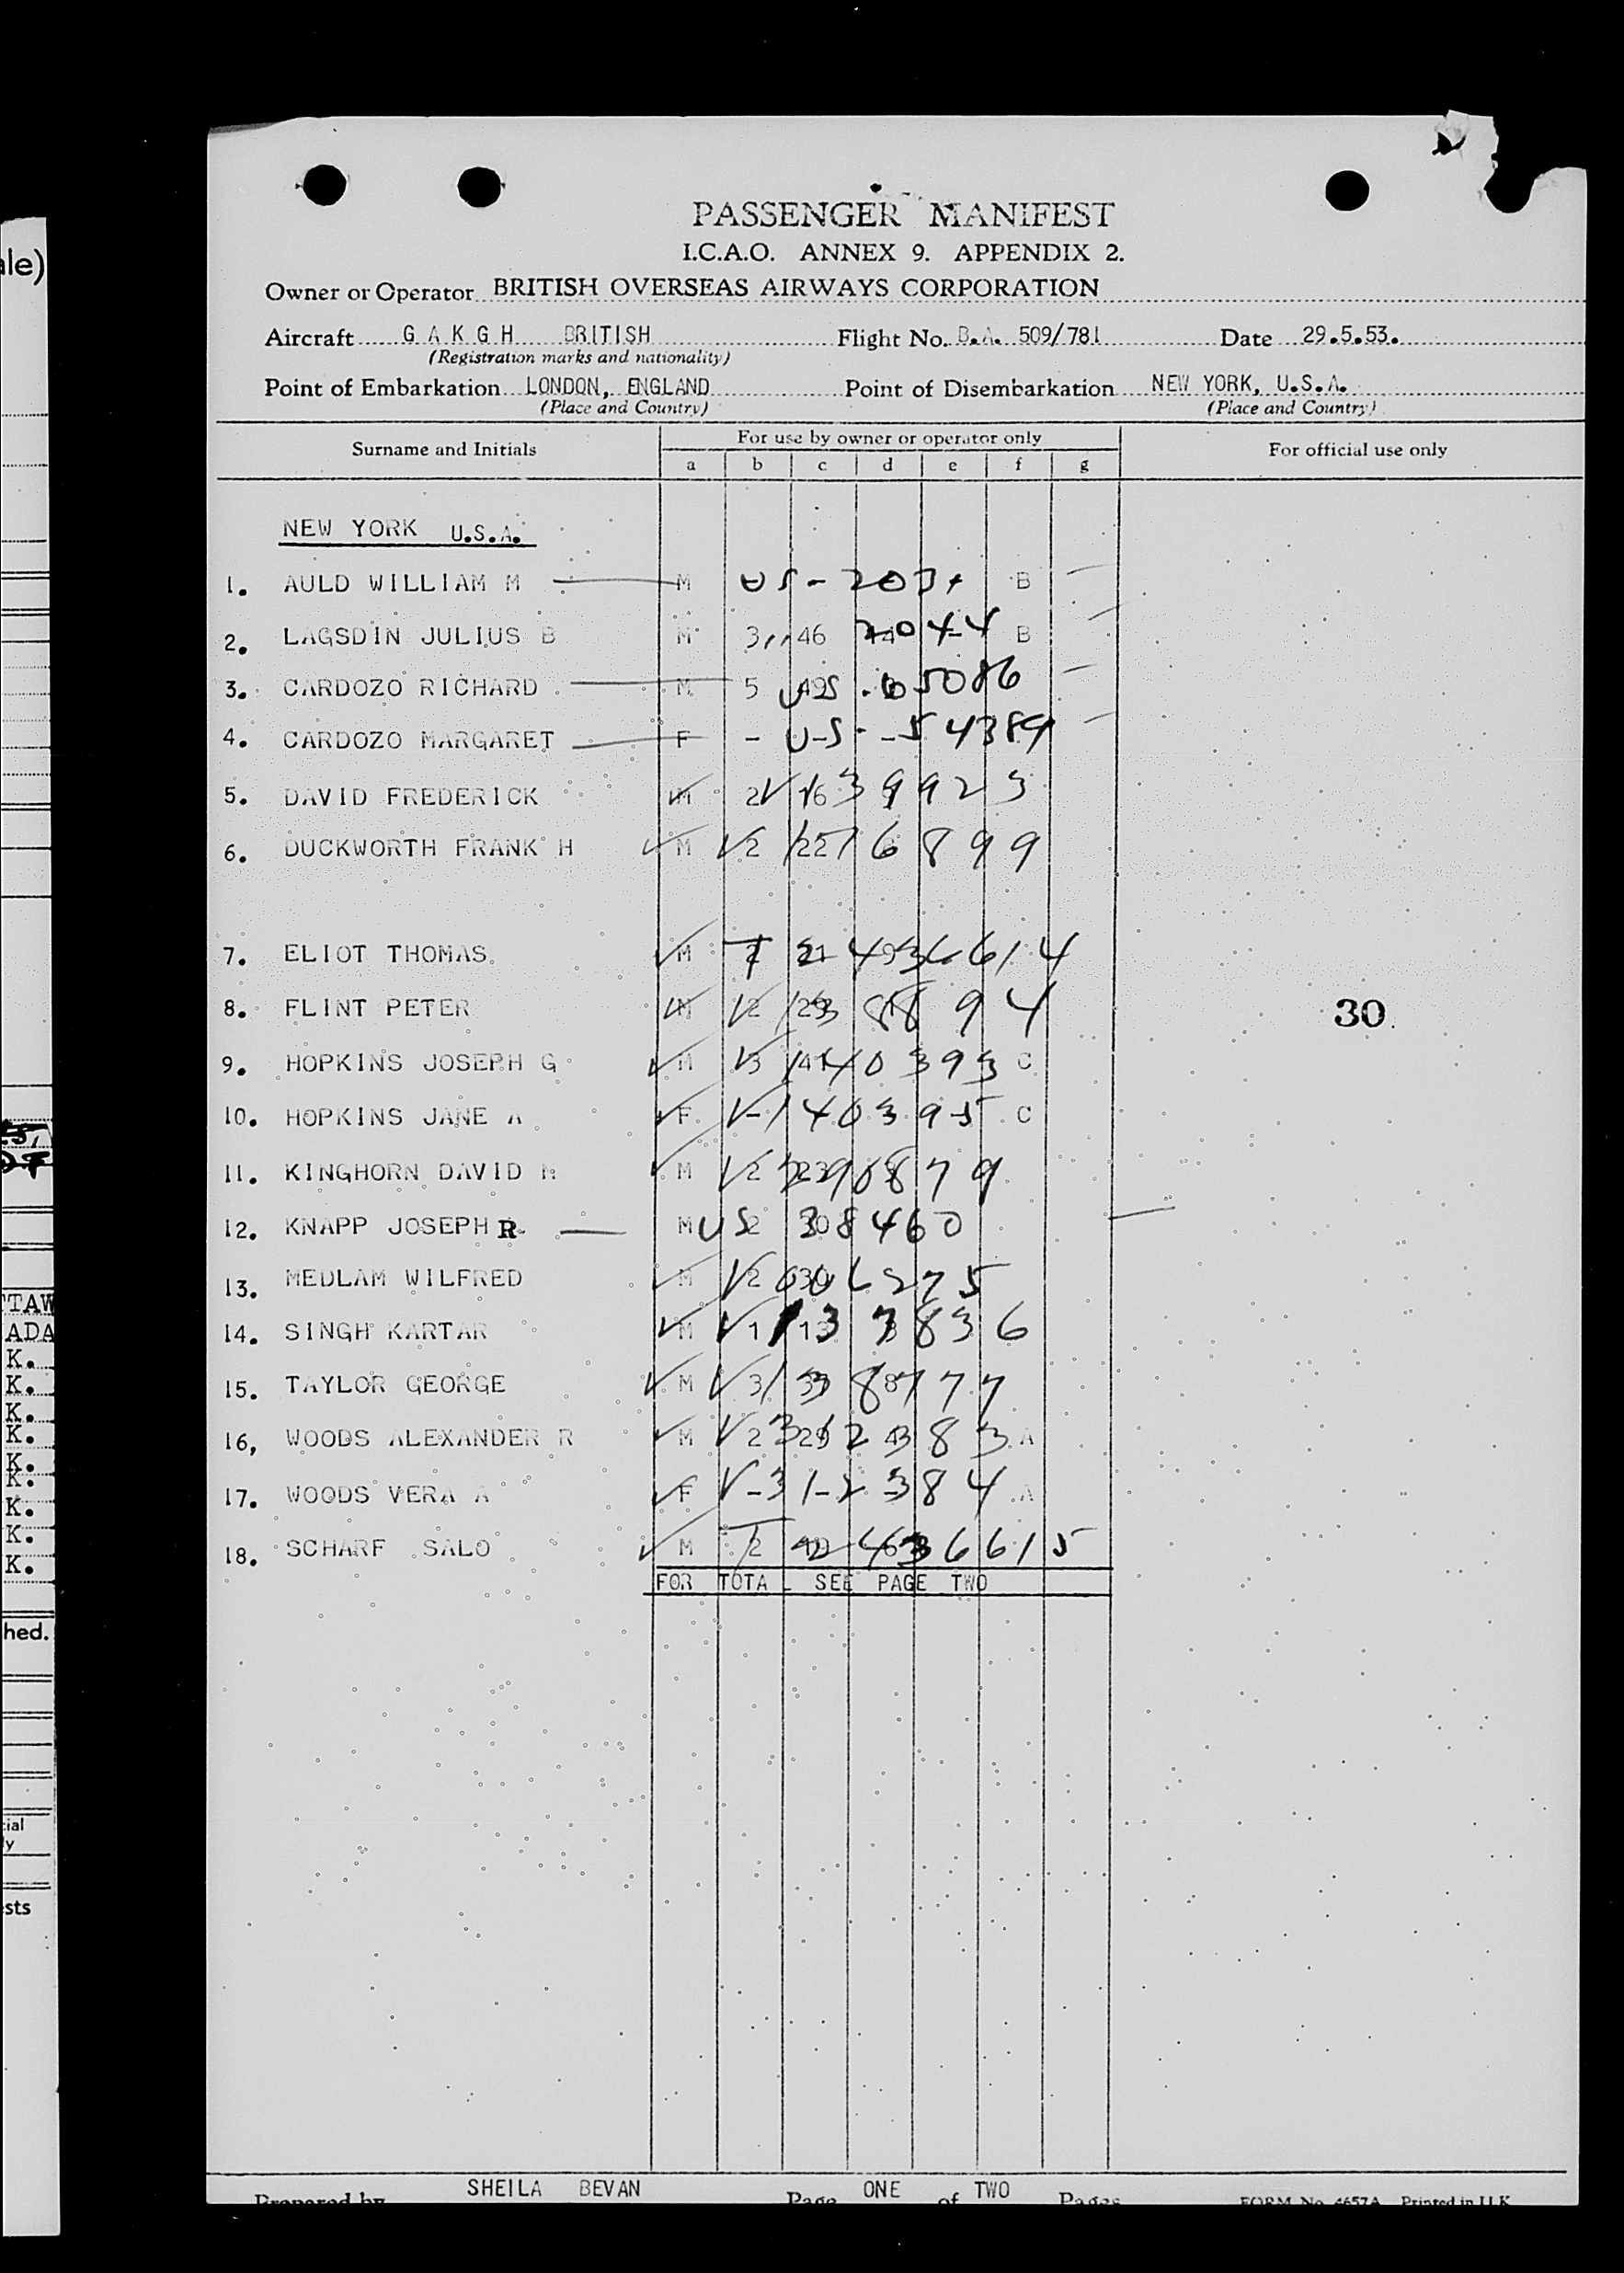 PASSENGER MANIFEST
I.C.A.O. ANNEX 9. APPENDIX 2.
Owner or Operator BRITISH OVERSEAS AIRWAYS CORPORATION
Aircraft G A K G H BRITISH Flight No. B.A. 509/781 Date 29.5.53.
(Registration marks and nationality)
Point of Embarkation LONDON, ENGLAND Point of Disembarkation NEW YORK, U.S.A.
(Place and Country) (Place and Country)
Surname and Initials For use by owner or operator only For official use only
a b c d e f g
NEW YORK U.S.A.
1. AULD WILLIAM M M US - B
2. LAGSDIN JULIUS B M 3 46 2044 B
3. CARDOZO RICHARD M 5 US 5086
4. CARDOZO MARGARET F - US - 54389
5. DAVID FREDERICK M 2 16 39923
6. DUCKWORTH FRANK H M 2 22 16899
7. ELIOT THOMAS M 2 21 436614
8. FLINT PETER M 2 8894
30
9. HOPKINS JOSEPH G M 3 140393 C
10. HOPKINS JANE A F - 140395 C
11. KINGHORN DAVID M M 2 0879
12. KNAPP JOSEPH R M US 2 308460
13. MEDLAM WILFRED M 2 30 6275
14. SINGH KARTAR M 1 13 7836
15. TAYLOR GEORGE M 3 8777
16, WOODS ALEXANDER R M 2 312383 A
17. WOODS VERA A F - 312384 A
18. SCHARF SALO M 2 436615
FOR TOTAL SEE PAGE TWO
Prepared by SHEILA BEVAN Page ONE of TWO Pages FORM No. 4657A Printed in U.K.
ale)
TTAW
ADA
K.
K.
K.
K.
K.
K.
K.
K.
K.
hed.
cial
ly
sts